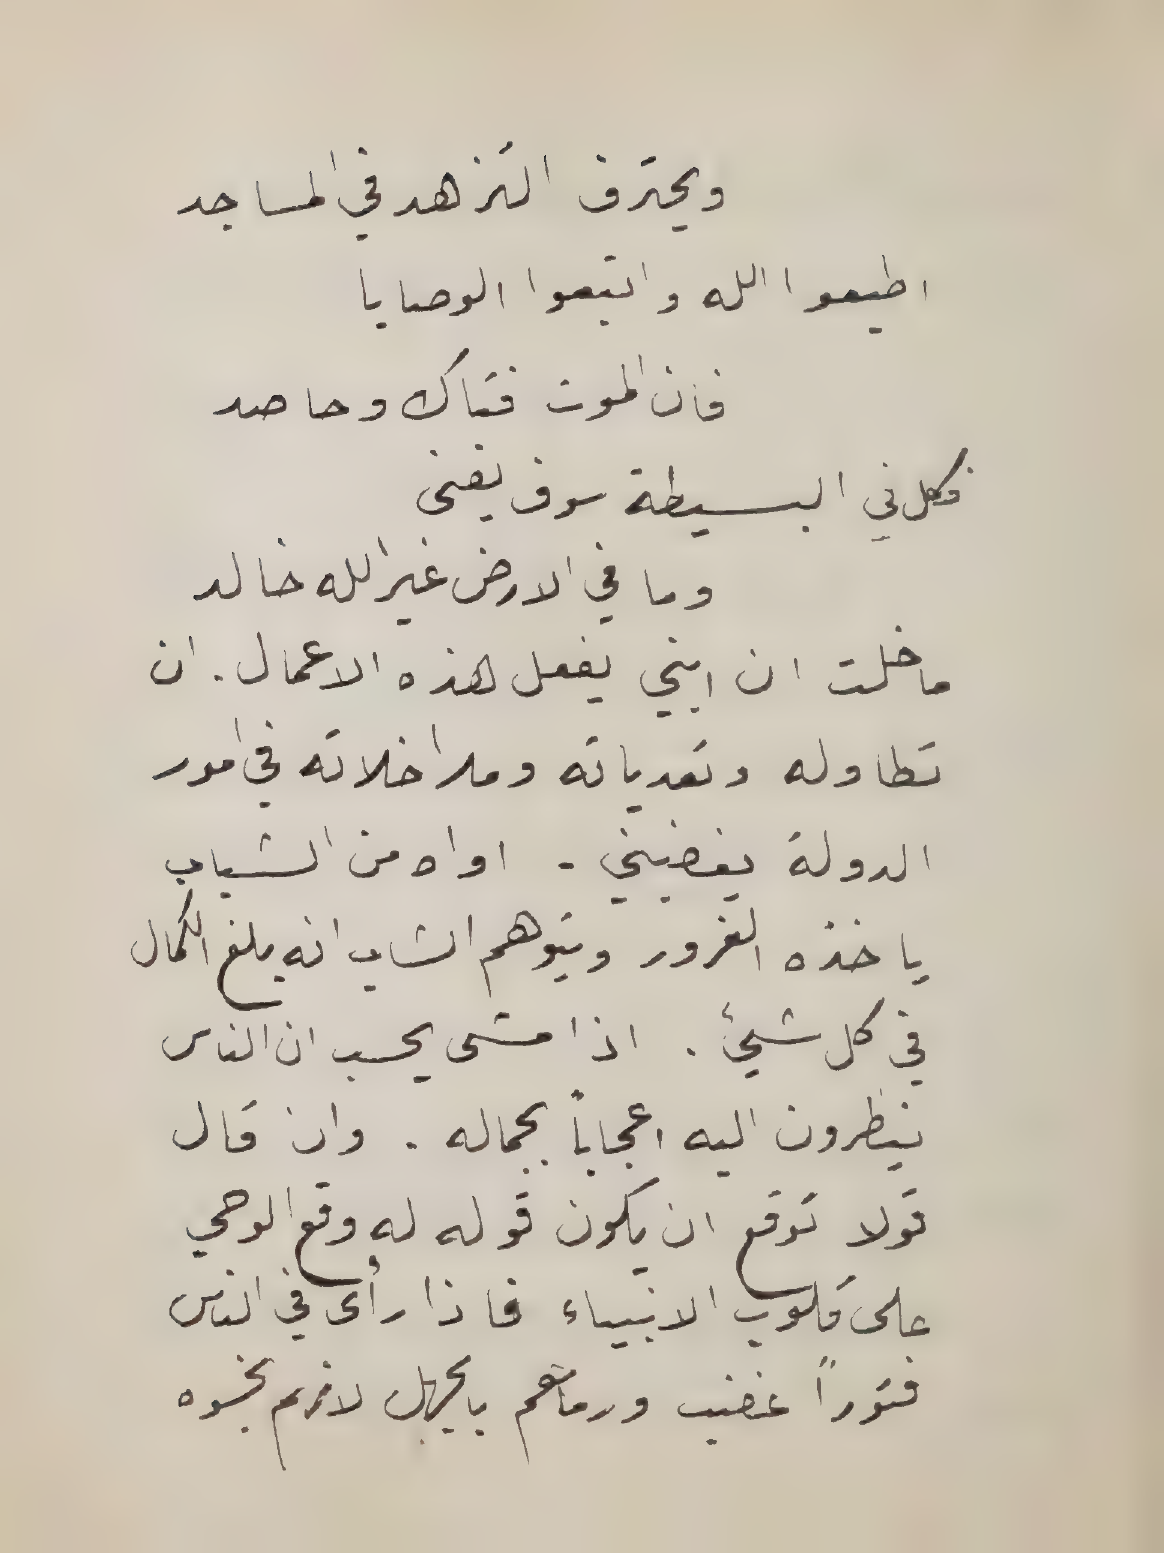 ويحترف التزهد في المساجد
اطيعوا الله واتبعوا الوصايا
فان الموت فتاك وحاصد
فكل في البسيطة سوف يفنى
وما في الارض غير الله خالد
ما خلت ان ابني يفعل هذه الاعمال. ان
تطاوله وتعدياته ومداخلاته في امور
الدولة يغضبني - اواه من الشباب
ياخذه الغرور ويتوهم الشاب انه بلغ الكمال
في كل شيئ. اذا مشى يحسب ان الناس
ينظرون اليه اعجاباً بجماله. وان قال
قولا توقع ان يكون قوله له وقع الوحي
على قلوب الانبياء فاذا رأى في الناس
فتوراً غضب ورماهم بالجهل لانهم بخسوه